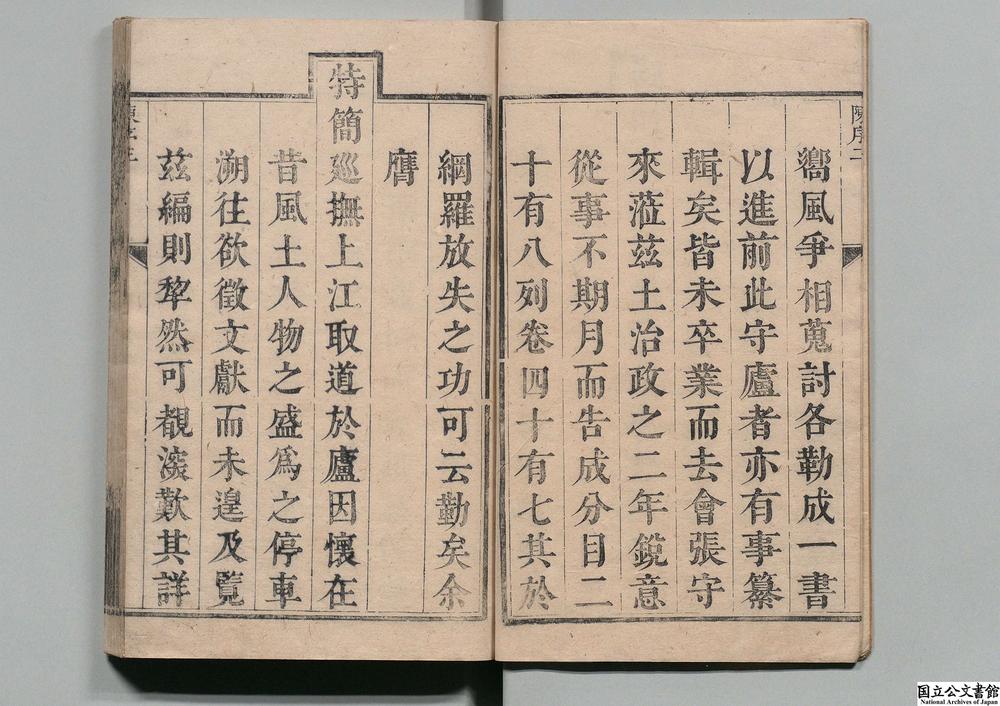 陳序二
嚮風爭相蒐討各勒成一書
以進前此守廬者亦有事纂
輯矣皆未卒業而去會張守
來蒞茲土治政之二年銳意
從事不期月而告成分目二
十有八列卷四十有七其於
網羅放失之功可云勤矣余
膺
特簡廵撫上江取道於廬因懷在
昔風土人物之盛爲之停車
溯往欲徵文獻而未遑及覽
茲編則犂然可覩深歎其詳
陳序三
国立公文書館
National Archives of Japan